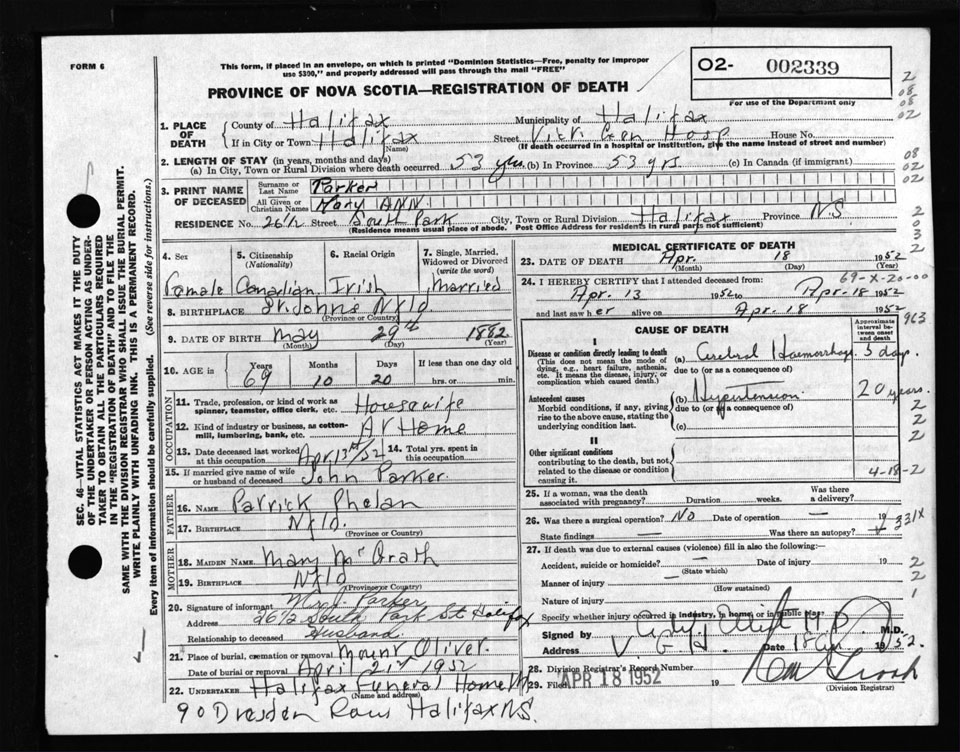 FORM 6
This form, if placed in an envelope, on which is printed "Dominion Statistics—Free, penalty for improper
use $300," and properly addressed will pass through the mail "FREE"
02- 002339
For use of the Department only
PROVINCE OF NOVA SCOTIA—REGISTRATION OF DEATH
1. PLACE OF DEATH
County of Halifax Municipality of Halifax
If in City or Town Halifax (Name) Street Vict. Gen Hosp House No.
(If death occurred in a hospital or institution, give the name instead of street and number)
2. LENGTH OF STAY (in years, months and days)
(a) In City, Town or Rural Division where death occurred 53 yrs. (b) In Province 53 yrs (c) In Canada (if immigrant)
3. PRINT NAME OF DECEASED
Surname or Last Name Parker
All Given or Christian Names Mary ANN.
RESIDENCE No. 26½ Street South Park City, Town or Rural Division Halifax Province N.S
(Residence means usual place of abode. Post Office Address for residents in rural parts not sufficient)
4. Sex
Female
5. Citizenship (Nationality)
Canadian
6. Racial Origin
Irish
7. Single, Married, Widowed or Divorced (write the word)
Married
8. BIRTHPLACE St. Johns Nfld
(Province or Country)
9. DATE OF BIRTH May 29th 1882
(Month) (Day) (Year)
10. AGE in Years 69 Months 10 Days 20 If less than one day old hrs. or min.
OCCUPATION
11. Trade, profession, or kind of work as spinner, teamster, office clerk, etc. Housewife
12. Kind of industry or business, as cotton-mill, lumbering, bank, etc. At Home
13. Date deceased last worked at this occupation Apr 13th/52 14. Total yrs. spent in this occupation
15. If married give name of wife or husband of deceased John Parker.
FATHER
16. NAME Patrick Phelan
17. BIRTHPLACE Nfld.
(Province or Country)
MOTHER
18. MAIDEN NAME Mary McGrath
19. BIRTHPLACE Nfld
(Province or Country)
20. Signature of informant Parker
Address 26½ South Park St Halifax
Relationship to deceased Husband.
21. Place of burial, cremation or removal Mount Oliver.
Date of burial or removal April 21st 1952
22. UNDERTAKER Halifax Funeral Home
(Name and address)
90 Dresden Row Halifax N.S.
MEDICAL CERTIFICATE OF DEATH
23. DATE OF DEATH Apr. 18 1952
(Month) (Day) (Year)
69-X-20-00
24. I HEREBY CERTIFY that I attended deceased from:
Apr. 13 1952 to Apr. 18 1952
and last saw her alive on Apr. 18 1952
CAUSE OF DEATH
Approximate interval between onset and death
I
Disease or condition directly leading to death
(This does not mean the mode of dying, e.g., heart failure, asthenia, etc. It means the disease, injury, or complication which caused death.)
(a) Cerebral Haemorrhage 5 days
due to (or as a consequence of)
Antecedent causes
Morbid conditions, if any, giving rise to the above cause, stating the underlying condition last.
(b) Hypertension 20 years.
due to (or as a consequence of)
(c)
II
Other significant conditions
contributing to the death, but not related to the disease or condition causing it.
4-18-2
25. If a woman, was the death associated with pregnancy? Duration weeks. Was there a delivery?
26. Was there a surgical operation? No Date of operation — 19
State findings — Was there an autopsy?
331X
27. If death was due to external causes (violence) fill in also the following:—
Accident, suicide or homicide? — Date of injury 19
(State which)
Manner of injury —
(How sustained)
Nature of injury —
Specify whether injury occurred in industry, in home or in public place
Signed by M.D.
Address V. G. H. Date 18 Apr 1952
28. Division Registrar's Record Number
29. Filed APR 18 1952 19
(Division Registrar)
2
08
08
02
08
02
02
2
0
3
2
963
2
2
2
2
2
1
SEC. 46—VITAL STATISTICS ACT MAKES IT THE DUTY
OF THE UNDERTAKER OR PERSON ACTING AS UNDER-
TAKER TO OBTAIN ALL THE PARTICULARS REQUIRED
IN THE "REGISTRATION OF DEATH" AND TO FILE THE
SAME WITH THE DIVISION REGISTRAR WHO SHALL ISSUE THE BURIAL PERMIT.
WRITE PLAINLY WITH UNFADING INK. THIS IS A PERMANENT RECORD.
Every item of information should be carefully supplied. (See reverse side for instructions.)